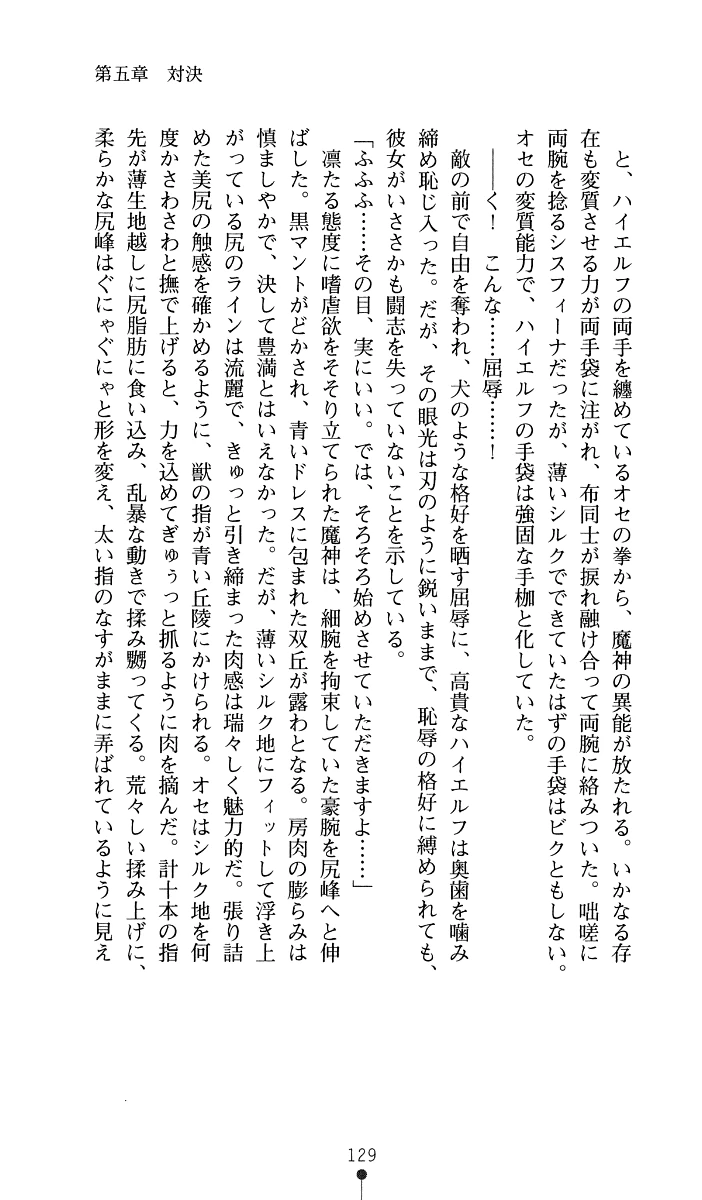 第五章　対決
　と、ハイエルフの両手を纏めているオセの拳から、魔神の異能が放たれる。いかなる存
在も変質させる力が両手袋に注がれ、布同士が捩れ融け合って両腕に絡みついた。咄嗟に
両腕を捻るシスフィーナだったが、薄いシルクでできていたはずの手袋はビクともしない。
オセの変質能力で、ハイエルフの手袋は強固な手枷と化していた。
　――く！　こんな……屈辱……！
　敵の前で自由を奪われ、犬のような格好を晒す屈辱に、高貴なハイエルフは奥歯を噛み
締め恥じ入った。だが、その眼光は刃のように鋭いままで、恥辱の格好に縛められても、
彼女がいささかも闘志を失っていないことを示している。
「ふふふ……その目、実にいい。では、そろそろ始めさせていただきますよ……」
　凛たる態度に嗜虐欲をそそり立てられた魔神は、細腕を拘束していた豪腕を尻峰へと伸
ばした。黒マントがどかされ、青いドレスに包まれた双丘が露わとなる。房肉の膨らみは
慎ましやかで、決して豊満とはいえなかった。だが、薄いシルク地にフィットして浮き上
がっている尻のラインは流麗で、きゅっと引き締まった肉感は瑞々しく魅力的だ。張り詰
めた美尻の触感を確かめるように、獣の指が青い丘陵にかけられる。オセはシルク地を何
度かさわさわと撫で上げると、力を込めてぎゅぅっと抓るように肉を摘んだ。計十本の指
先が薄生地越しに尻脂肪に食い込み、乱暴な動きで揉み嬲ってくる。荒々しい揉み上げに、
柔らかな尻峰はぐにゃぐにゃと形を変え、太い指のなすがままに弄ばれているように見え
129